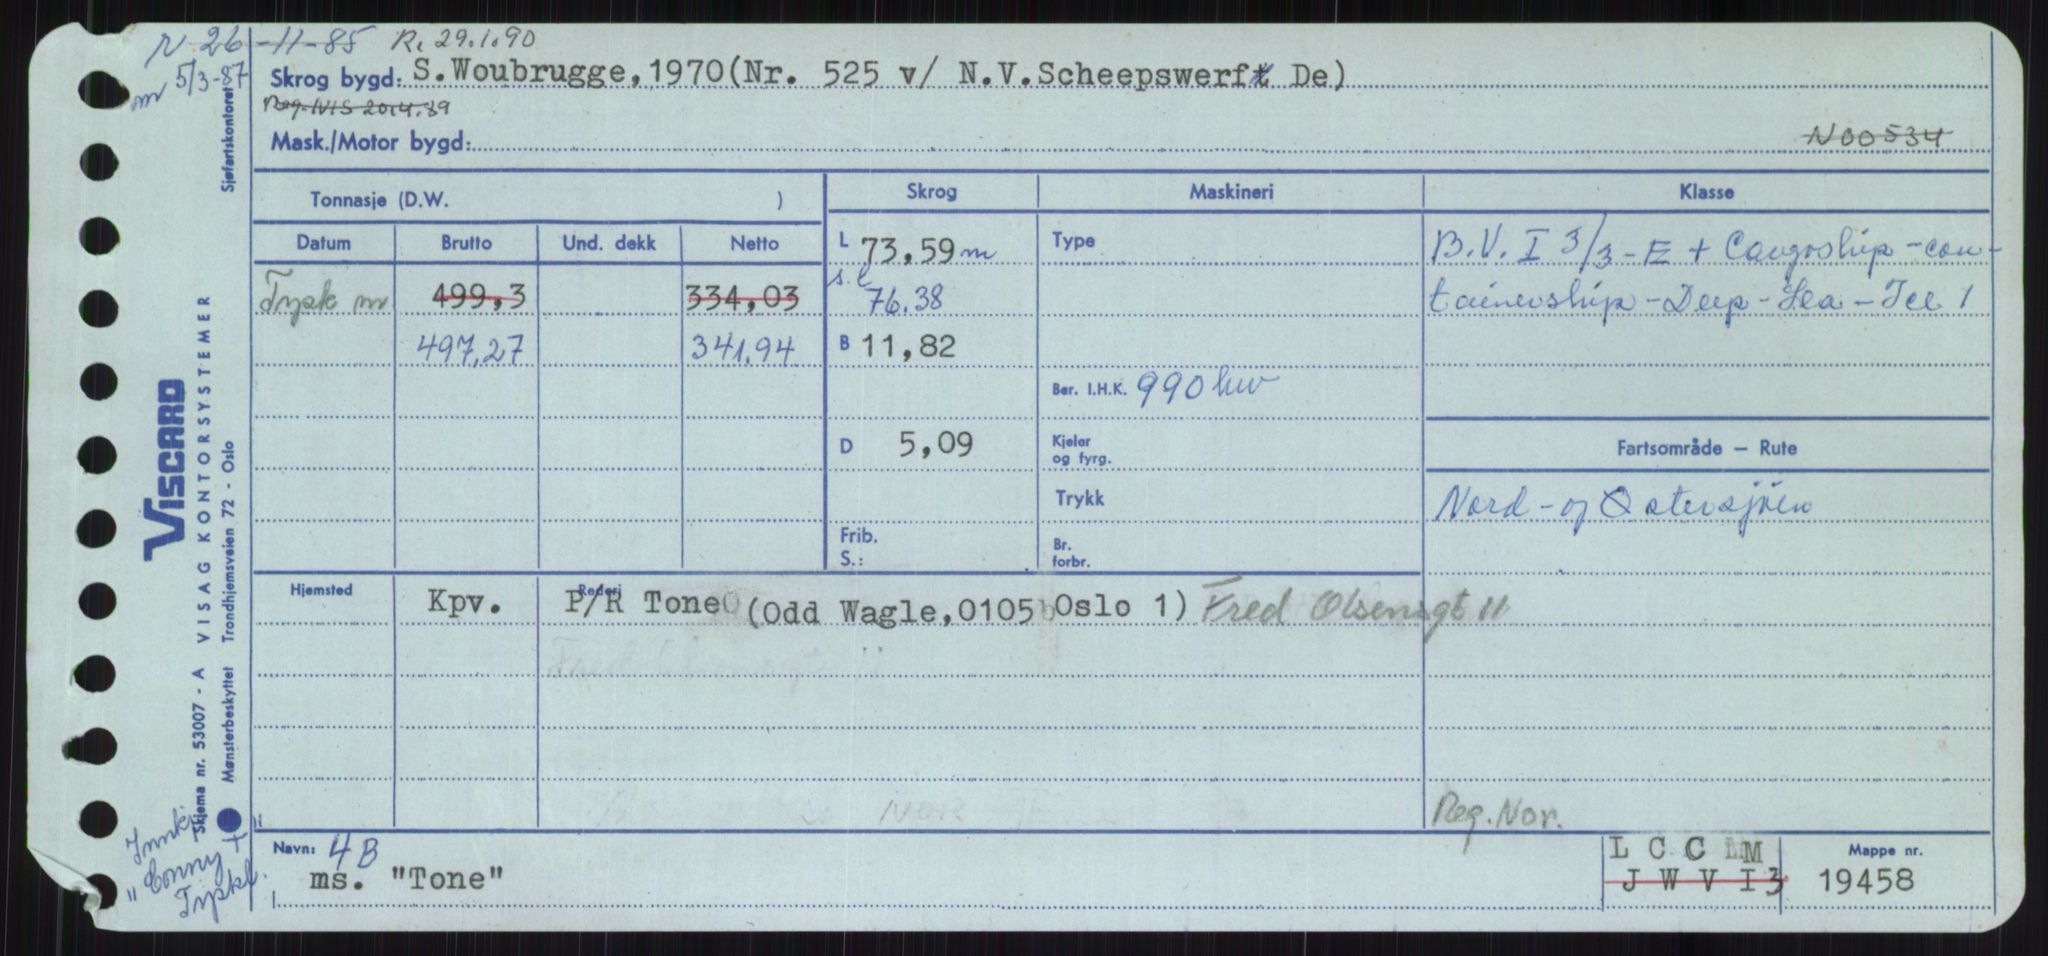 N 26-11-85 R. 29.1.90
nr 5/3-87
Skrog bygd: S.Woubrugge,1970(Nr. 525 v/ N.V.Scheepswerft De)
Reg. NIS 20.4.89
Mask./Motor bygd: N00534
Tonnasje (D.W. ) Skrog Maskineri Klasse
Datum Brutto Und. dekk Netto
L 73,59 m Type B.V. I 3/3-E + Cargoship-con-
Tysk nr 499,3 334,03 s.l 76.38 tainership-Deep-Sea-Ice 1
497,27 341,94 B 11,82
Ber. I.H.K. 990 hw
D 5,09 Kjeler og fyrg. Fartsområde — Rute
Trykk Nord- og Østersjöen
Frib. S.: Br. forbr.
Hjemsted Kpv. Rederi P/R Tone (Odd Wagle,0105 Oslo 1) Fred Olsensgt 11
Reg. Nor.
Navn: 4B
ms. "Tone"
L C C M
J W V I 3
Mappe nr.
19458
Sjøfartskontoret
VISCARD
VISAG KONTORSYSTEMER
Skjema nr. 53007 - A
Trondhjemsveien 72 - Oslo
Mønsterbeskyttet
Innkj.
"Conny"
Tyskl.